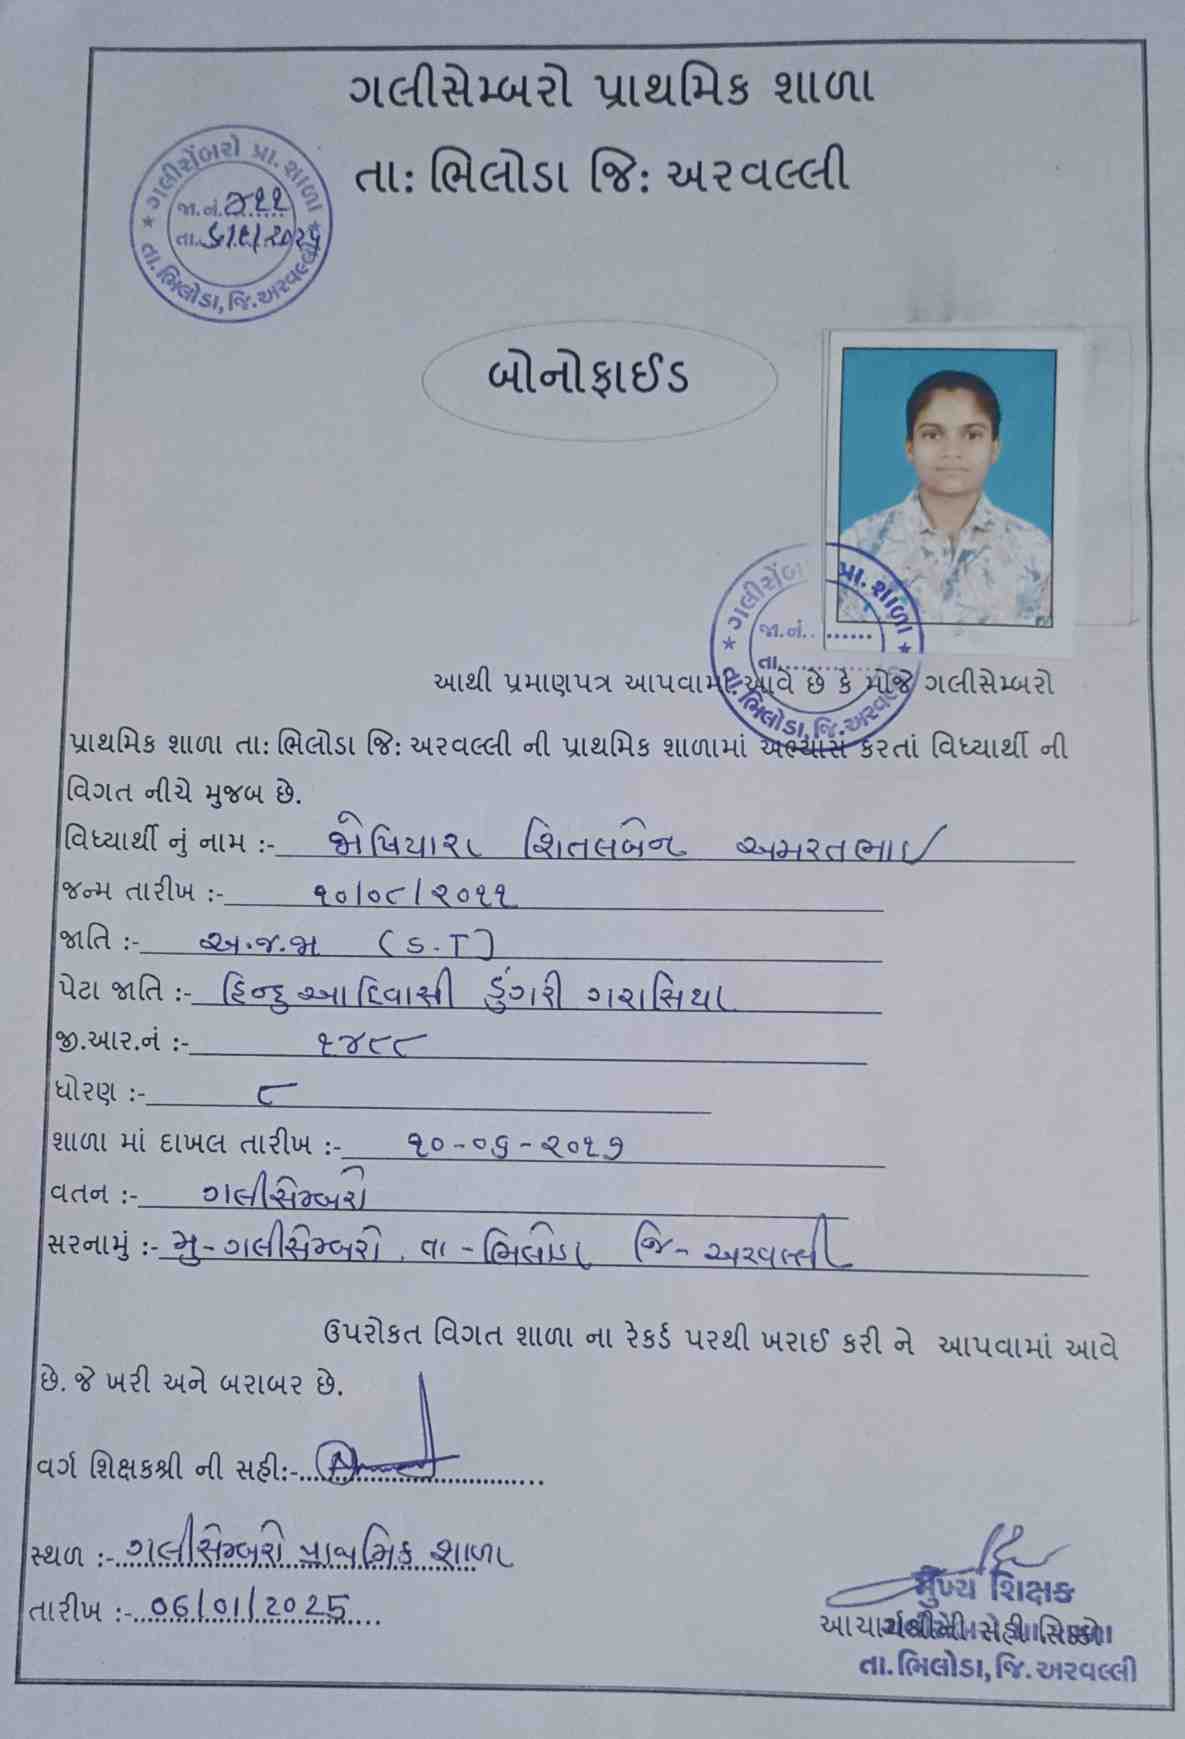 ગલીસેમ્બરો પ્રાથમિક શાળા
તા: ભિલોડા જિ: અરવલ્લી
ગલીસેંબરો પ્રા. શાળા
જા.નં. ૪૧૧
તા.
તા.ભિલોડા, જિ.અરવલ્લી
બોનોફાઈડ
ગલીસેંબ પ્રા. શાળા
જા.નં.
તા.
તા.ભિલોડા, જિ.અરવલ્લી
આથી પ્રમાણપત્ર આપવામાં આવે છે કે મોજે ગલીસેમ્બરો
પ્રાથમિક શાળા તા: ભિલોડા જિ: અરવલ્લી ની પ્રાથમિક શાળામાં અભ્યાસ કરતાં વિધ્યાર્થી ની
વિગત નીચે મુજબ છે.
વિધ્યાર્થી નું નામ :- જોષિયારા શિતલબેન અમરતભાઈ
જન્મ તારીખ :- ૧૦/૦૮/૨૦૧૧
જાતિ :- અ.જ.જા (S.T)
પેટા જાતિ :- હિન્દુ આદિવાસી ડુંગરી ગરાસિયા
જી.આર.નં :- ૧૪૮૮
ધોરણ :- ૮
શાળા માં દાખલ તારીખ :- ૧૦-૦૬-૨૦૧૭
વતન :- ગલીસેમ્બરો
સરનામું :- મુ-ગલીસેમ્બરો, તા-ભિલોડા જિ-અરવલ્લી
ઉપરોકત વિગત શાળા ના રેકર્ડ પરથી ખરાઈ કરી ને આપવામાં આવે
છે. જે ખરી અને બરાબર છે.
વર્ગ શિક્ષકશ્રી ની સહી:-
સ્થળ :- ગલીસેમ્બરો પ્રાથમિક શાળા
તારીખ :- 06/01/2025
મુખ્ય શિક્ષક
તા.ભિલોડા, જિ.અરવલ્લી